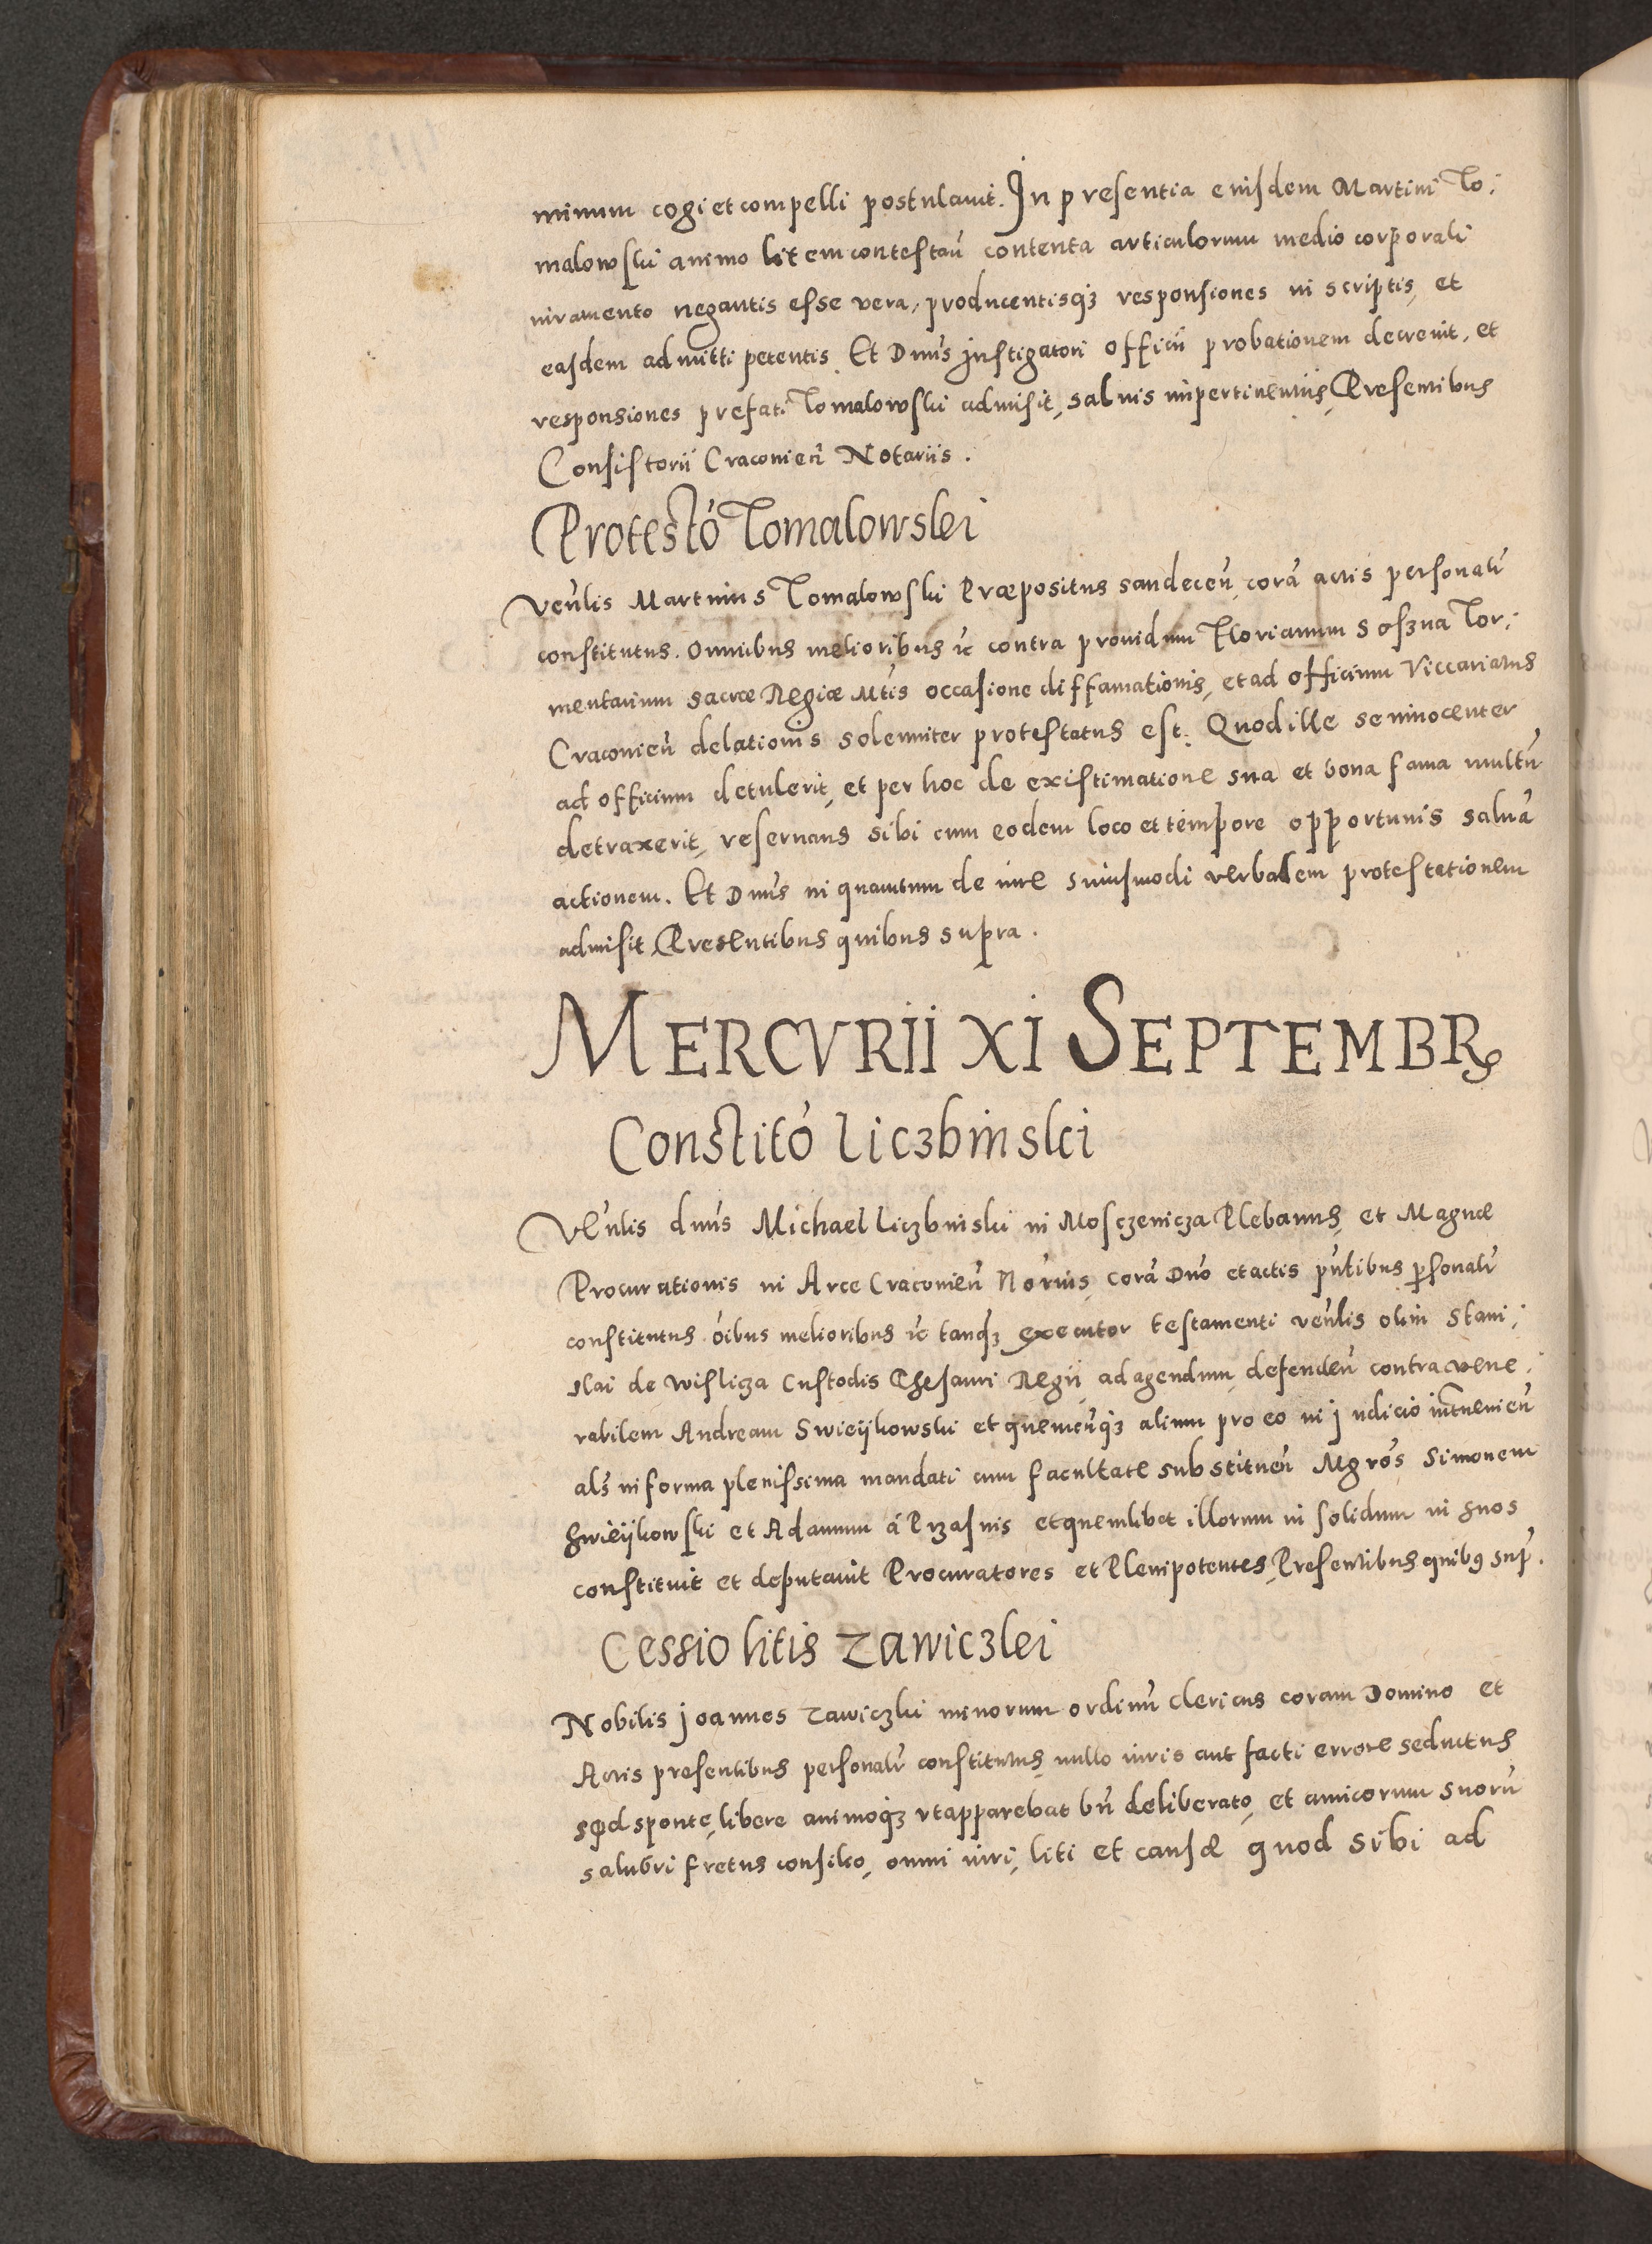 minum cogi et compelli postulauit. In presentia eiusdem Martini To,
malowski animo litem contestań contenta articulorum medio corporali
iuramento negantis esse vera, producentisqȝ responsiones in scriptis, et
easdem admitti petentis. Et Dnūs Instigatori officii probationem decreuit, et
responsiones prefati Tomalowski admisit, saluis impertinentiis, Presentibus
Consistorii Cracovień Notariis.
Protestō Tomalowskı
Veńlis Martinus Tomalowski Præpositus Sandeceń, corā actis personalr̄
constitutus. Omnibus melioribus ꝛc̄ contra prouidum Florianum Soszna Tor,
mentarium Sacræ Regiæ Mtis occasione diffamationis, et ad officium Viccariatus
Cracovień delationis solenniter protestatus est. Quod ille se innocenter
ad officium detulerit, et per hoc de existimatione sua et bona fama multū
detraxerit, reseruans sibi cum eodem loco et tempore opportunis saluā
actionem. Et Dnūs in quantum de iure suiusmodi verbalem protestationem
admisit, Presentibus quibus supra.
MERCVRII XI SEPTEMBRꝭ
Constitō Liczbinski
Veńlis dnūs Michael Liczbinski in Mosczenicza Plebanus, et Magnæ
Procurationis in Arce Cracovień Nōrius, corā Dnō et actis pn̄tibus ꝑsonalr̄
constitutus ōibus melioribus ꝛc̄ tanqȝ executor testamenti veńlis olim Stani,
slai de Wislicza Custodis Thesauri Regii, ad agendum, defendeń contra vene,
rabilem Andream Swieijkowski et quemcūqȝ alium pro eo in judicio inṫueniēn
als̄ in forma plenissima mandati cum facultate substitueń Mgrōs Simonem
Swieijkowski et Adamum á Przasnis et quemlibet illorum in solidum in suos
constituit et deputauit Procuratores et Plenipotentes, Presentibus quibꝰ sup̄.
Cessio litis Zawiczkı
Nobilis Joannes Zawiczki minorum ordinū Clericus coram Domino et
Actis presentibus personalr̄ constitutus, nullo iuris aut facti errore seductus
sed sponte, libere animoqȝ vt apparebat bń deliberato, et amicorum suorū
salubri fretus consilio, omni iuri, liti et causæ quod sibi ad